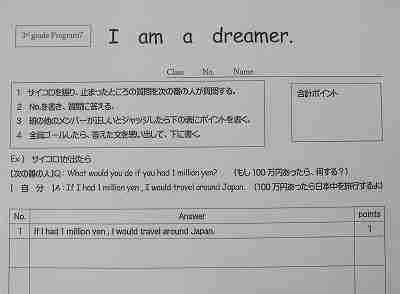 3rd grade Program7
I am a dreamer.
Class No. Name
1 サイコロを振り、止まったところの質問を次の番の人が質問する。
2 No.を書き、質問に答える。
3 班の他のメンバーが正しいとジャッジしたら下の表にポイントを書く。
4 全員ゴールしたら、答えた文を思い出して、下に書く。
合計ポイント
Ex) サイコロ1が出たら
【次の番の人】Q : What would you do if you had 1 million yen? (もし100万円あったら、何する？)
【自 分】A : If I had 1 million yen , I would travel around Japan. (100万円あったら日本中を旅行するよ)
No. Answer points
1 If I had 1 million yen , I would travel around Japan. 1